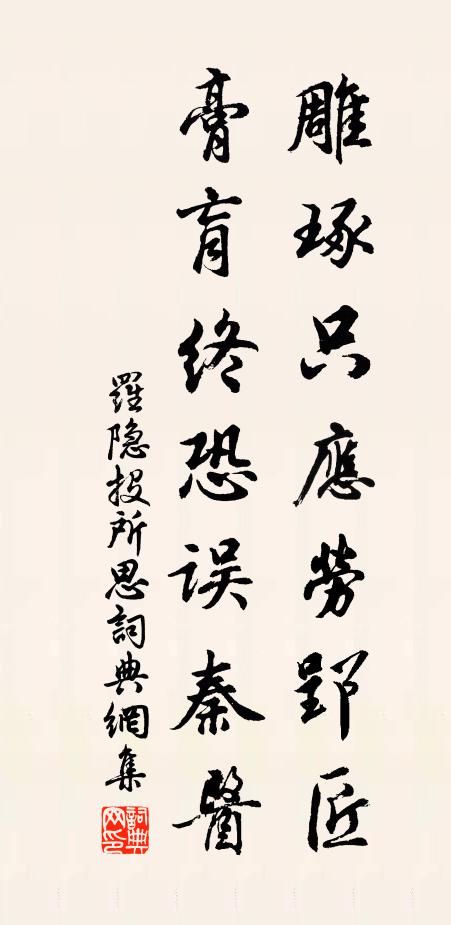 雕琢只應勞郢匠
膏肓終恐误秦醫
羅隐投所思詞典網集
詞典網印